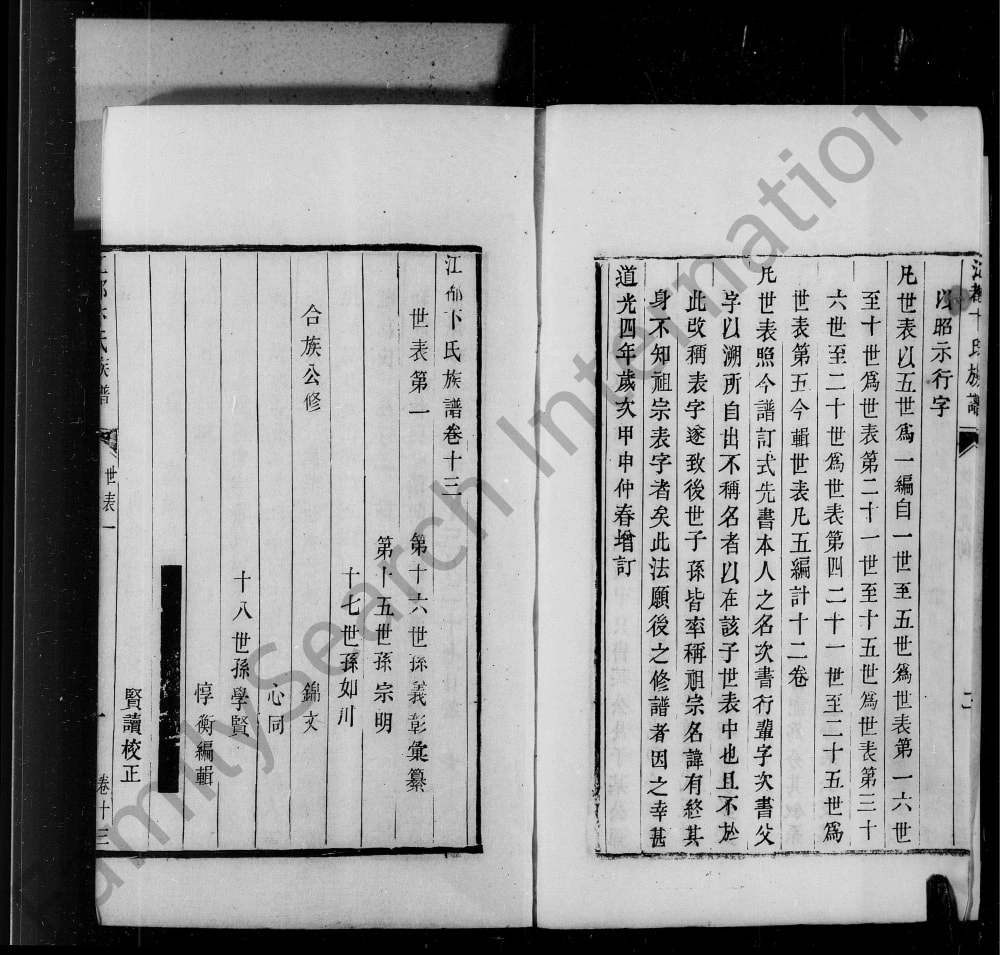 江都卞氏族譜
二
以昭示行字
凡世表以五世爲一編自一世至五世爲世表第一六世
至十世爲世表第二十一世至十五世爲世表第三十
六世至二十世爲世表第四二十一世至二十五世爲
世表第五今輯世表凡五編計十二卷
凡世表照今譜訂式先書本人之名次書行輩字次書父
字以溯所自出不稱名者以在該子世表中也且不於
此改稱表字遂致後世子孫皆率稱祖宗名諱有終其
身不知祖宗表字者矣此法願後之修譜者因之幸甚
道光四年歲次甲申仲春增訂
江都卞氏族譜卷十三
世表第一
第十六世孫義彰彙纂
第十五世孫宗明
合族公修
十七世孫如川
錦文
心同
十八世孫學賢
惇衡編輯
賢讀校正
江都卞氏族譜
世表一
一
卷十三
FamilySearch International